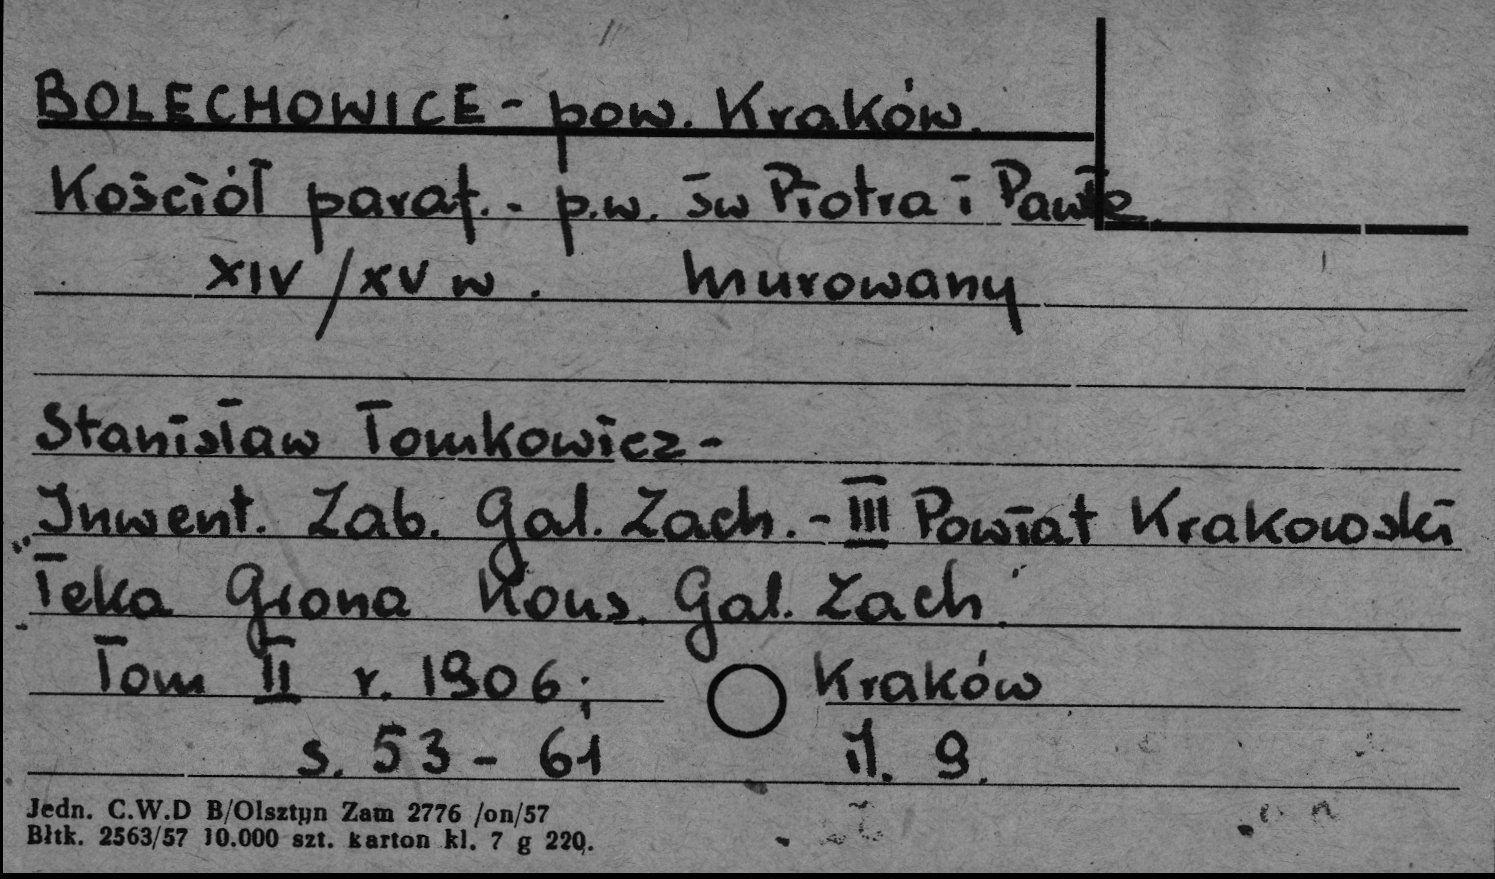 BOLECHOWICE - pow. Kraków.
Kościół paraf. - p.w. św Piotra i Pawła
XIV/XV w. murowany
Stanisław Tomkowicz -
Inwent. Zab. Gal. Zach. - III Powiat Krakowski
"Teka Grona Kons. Gal. Zach.
Tom II r. 1906; Kraków
s. 53 - 61 il. 9.
Jedn. C.W.D B/Olsztyn Zam 2776 /on/57
Błtk. 2563/57 10.000 szt. karton kl. 7 g 220.